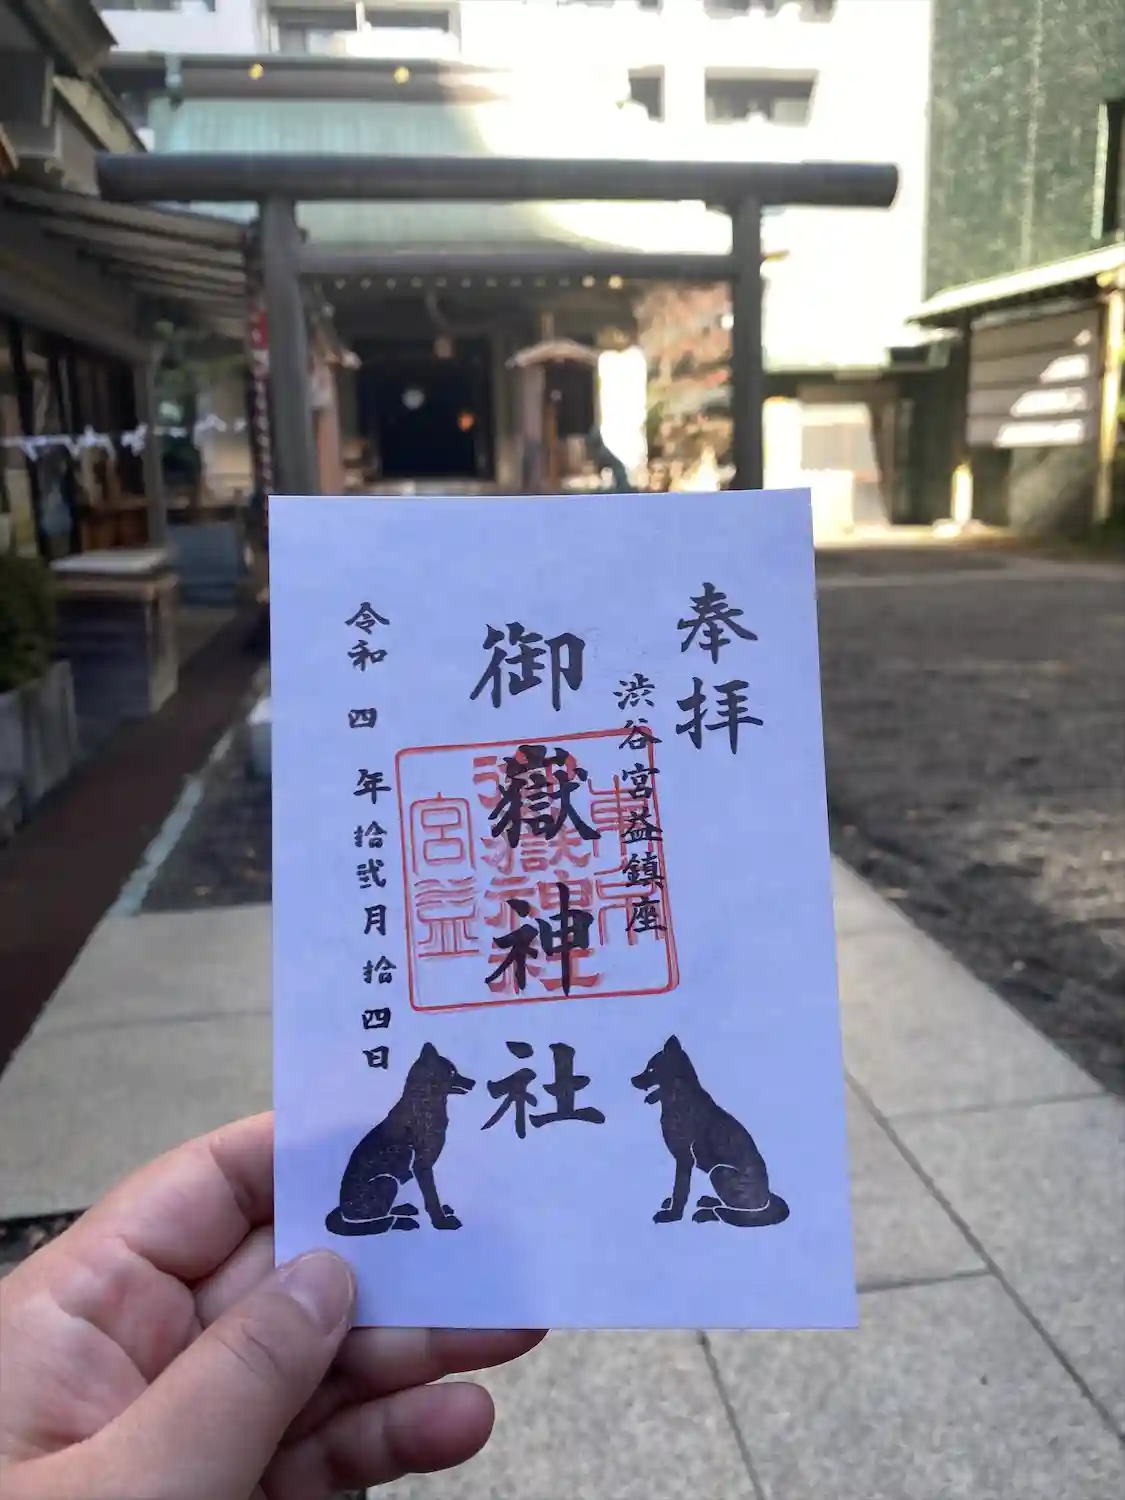 奉拝
渋谷宮益鎮座
御嶽神社
東京
御嶽神社
宮益
令和四年拾弐月拾四日